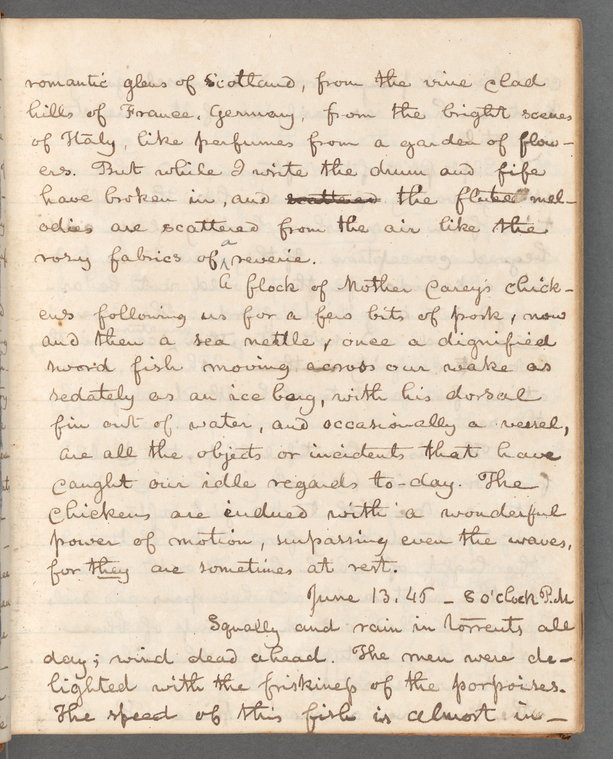 romantic glens of Scotland, from the vine clad
hills of France, Germany, from the bright scenes
of Italy, like perfumes from a garden of flow-
ers. But while I write the drum and fife
have broken in, and scattered the flutes mel-
odies are scattered from the air like the
rosy fabrics of a reverie.
A flock of Mother Carey's chick-
ens following us for a few bits of pork, now
and then a sea nettle, once a dignified
sword fish moving across our wake as
sedately as an ice berg, with his dorsal
fin out of water, and occasionally a vessel,
are all the objects or incidents that have
caught our idle regards to-day. The
chickens are endued with a wonderful
power of motion, surpassing even the waves,
for they are sometimes at rest.
June 13. 45 - 8 o'clock P.M
Squally and rain in torrents all
day; wind dead ahead. The men were de-
lighted with the friskiness of the porpoises.
The speed of this fish is almost in-